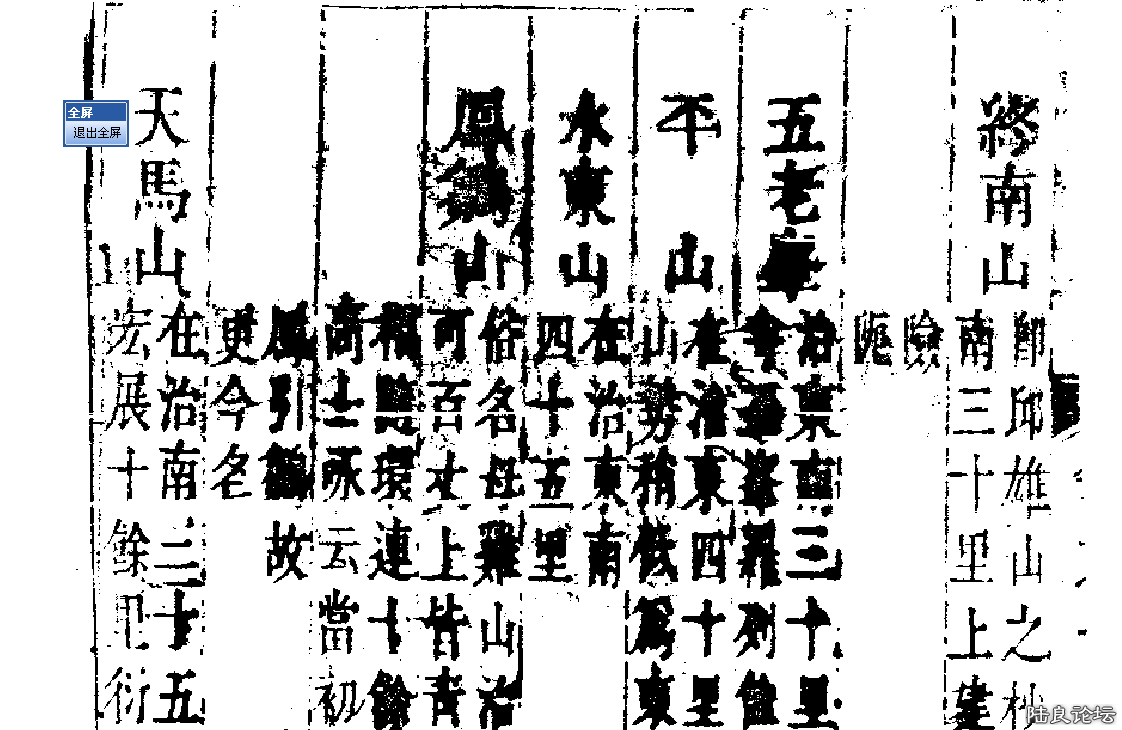 全屏
退出全屏
終南山
邱雄山之杪
南三十里上建
險
阨
五老
治東南三十里
羅列
平山
在治東四十里
山勢稍低爲東
水東山
在治東南
四十五里
鳳山
俗名母雞山治
可百丈上皆青
環連十餘
高士云當初
鳳引故
更今名
天馬山
在治南三十五
宏展十餘里衍
陆良论坛